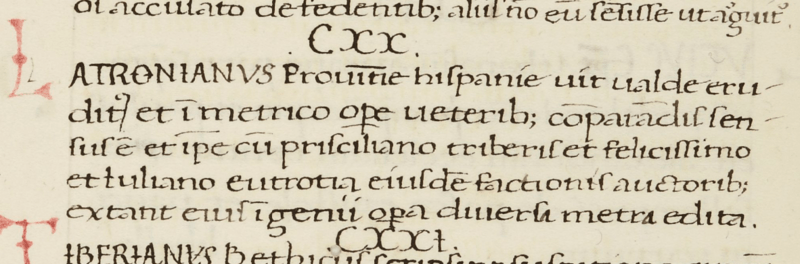 accusato defendentib; alii nō eū sēsisse ut arguitꝰ.
CXX.
LATRONIANVS Prouītie hispanie uir ualde eru-
ditꝰ et ī metrico ope ueterib; cōparādis sen-
sus ē et ipe cū prisciliano triberis et felicissimo
et Iuliano eutrotia eiusdē factionis auctorib;
extant eius īgenii opa diuersa metra edita.
CXXI.
TIBERIANVS Bethicus